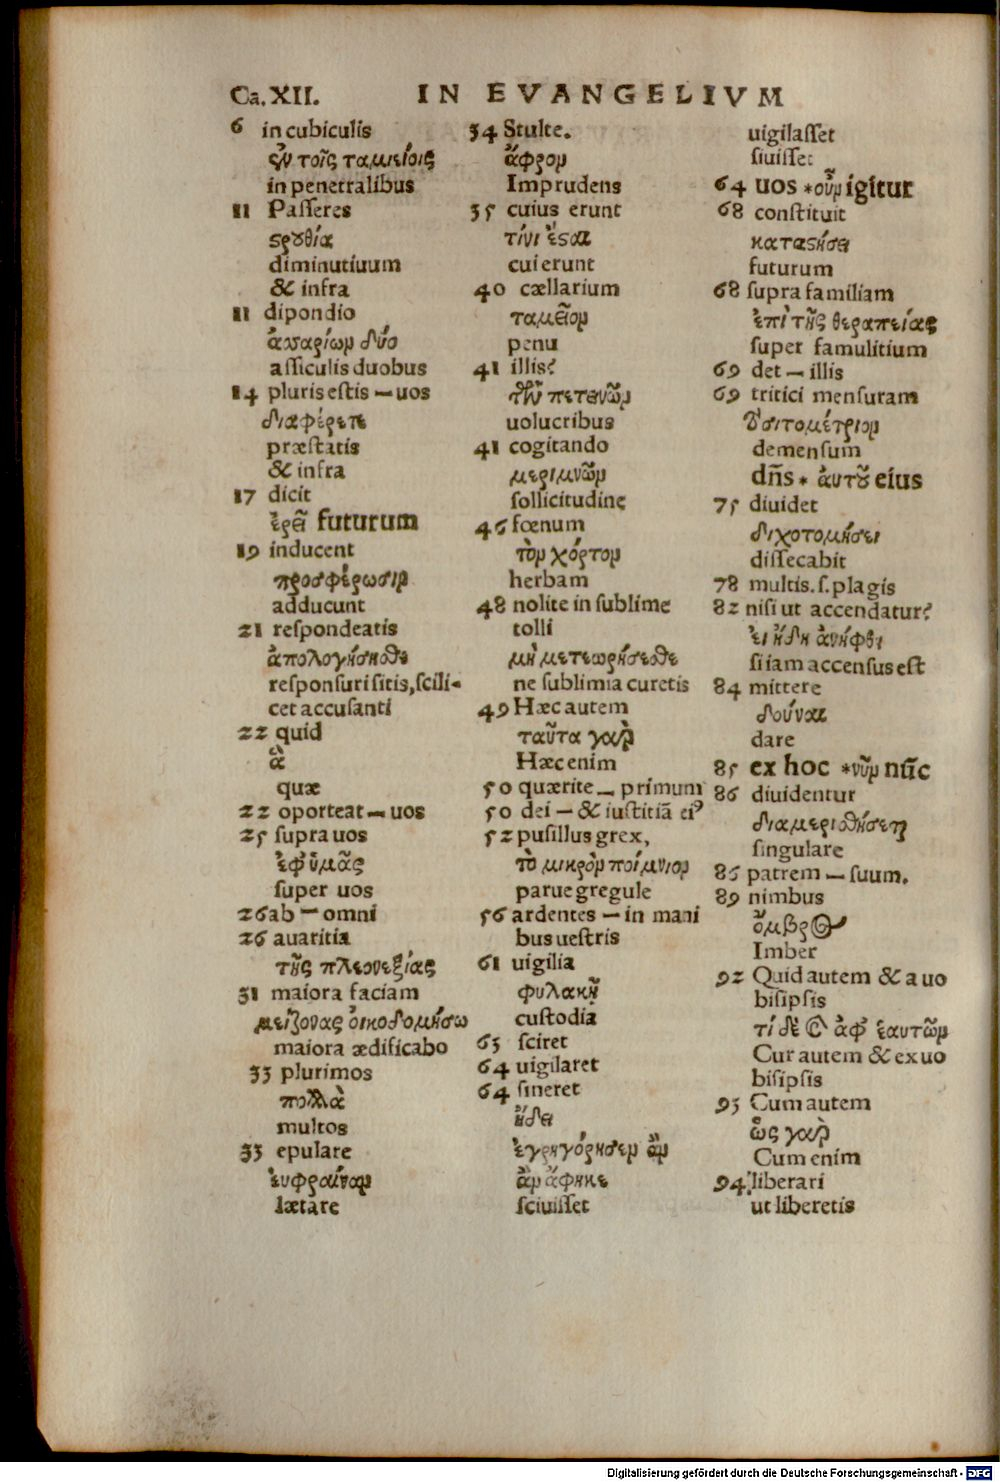 Ca. XII. IN EVANGELIVM
6 in cubiculis
ἐν τοῖς ταμιείοις
in penetralibus
11 Paſſeres
ςρȣθία
diminutiuum
& infra
11 dipondio
ἀσσαρίων δύο
aſſiculis duobus
14 pluris eſtis — uos
διαφέρετε
præſtatis
& infra
17 dicit
ἐρεῖ futurum
19 inducent
προσφέρωσιν
adducunt
21 reſpondeatis
ἀπολογήσησθε
reſponſuri ſitis, ſcili-
cet accuſanti
22 quid
ἃ
quæ
22 oporteat — uos
25 ſupra uos
ἐφ᾽ ὑμᾶς
ſuper uos
26 ab — omni
26 auaritia
τῆς πλεονεξίας
31 maiora faciam
μείζονας οἰκοδομήσω
maiora ædificabo
33 plurimos
πολλὰ
multos
33 epulare
ἐυφραίνου
lætare
34 Stulte.
ἄφρον
Imprudens
35 cuius erunt
τίνι ἔςαι
cui erunt
40 cællarium
ταμεῖον
penu
41 illis?
τῶν πετεινῶν
uolucribus
41 cogitando
μεριμνῶν
ſollicitudine
46 fœnum
τὸν χόρτον
herbam
48 nolite in ſublime
tolli
μὴ μετεωρίζεσθε
ne ſublimia curetis
49 Hæc autem
ταῦτα γαὰρ
Hæc enim
50 quærite — primum
50 dei — & iuſtitiã eiꝰ
52 puſillus grex,
τὸ μικρὸν ποίμνιον
parue gregule
56 ardentes — in mani
bus ueſtris
61 uigilia
φυλακῇ
cuſtodia
63 ſciret
64 uigilaret
64 ſineret
ᾔδει
ἐγρηγόρησεν ἂν
ἂν ἄφηκε
ſciuiſſet
uigilaſſet
ſiuiſſet
64 uos * οὖν igitur
68 conſtituit
καταςήσει
futurum
68 ſupra familiam
ἐπὶ τῆς θεραπείας
ſuper famulitium
69 det — illis
69 tritici menſuram
τὸ σιτομέτριον
demenſum
dñs * ἀυτȣ͂ eius
75 diuidet
διχοτομήσει
diſſecabit
78 multis. ſ. plagis
82 niſi ut accendatur?
ἐι ἤδη ἀνήφθι
ſi iam accenſus eſt
84 mittere
δοῦναι
dare
85 ex hoc * νῦν nũc
86 diuidentur
διαμερισθήσεται
ſingulare
86 patrem — ſuum.
89 nimbus
ὄμβρος
Imber
92 Quid autem & a uo
biſipſis
τί δὲ καὶ ἀφ᾽ ἑαυτῶν
Cur autem & ex uo
biſipſis
93 Cum autem
ὡς γαὰρ
Cum enim
94 liberari
ut liberetis
Digitalisierung gefördert durch die Deutsche Forschungsgemeinschaft - DFG